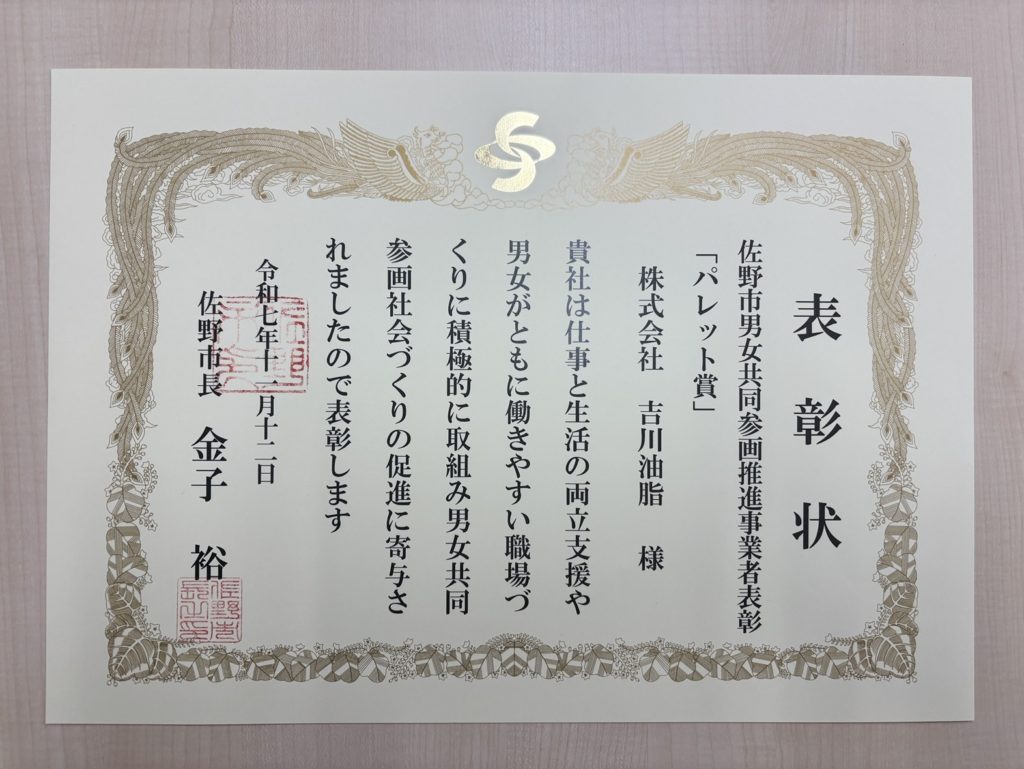 表彰状
佐野市男女共同参画推進事業者表彰
「パレット賞」
株式会社 吉川油脂 様
貴社は仕事と生活の両立支援や
男女がともに働きやすい職場づ
くりに積極的に取組み男女共同
参画社会づくりの促進に寄与さ
れましたので表彰します
令和七年十一月十二日
佐野市長 金子 裕
佐野市
長之印